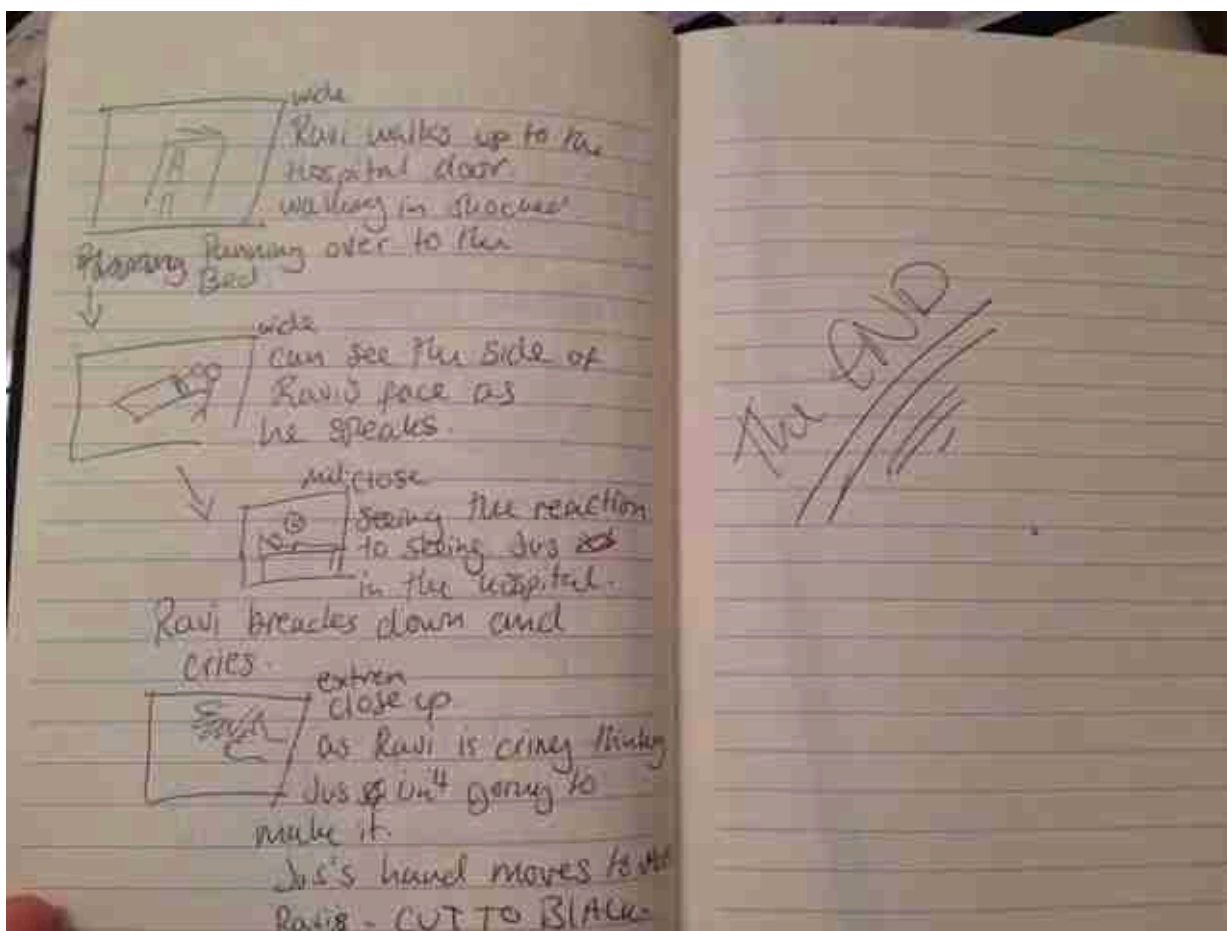 wide
Ravi walks up to the
Hospital door.
walking in shocked
Running over to the
Bed.
wide
can see the side of
Ravis face as
he speaks.
mid close
Seeing the reaction
to seeing Jus
in the hospital.
Ravi breackes down and
cries.
extrem
close up
as Ravi is criney thinking
Jus isn't going to
make it.
Jus's hand moves to
Ravis - CUT TO BLACK-
The END